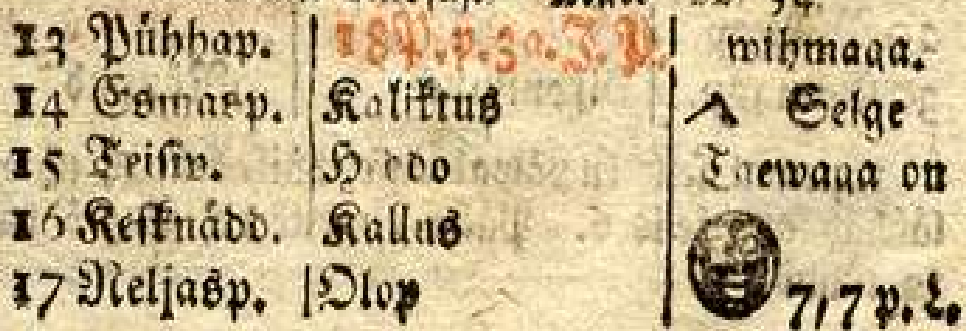 13 Pühhap. 18P. p. 3a. J. P. wihmaga.
14 Esmasp. Kaliktus Selge
15 Teisip. Heddo Taewaga on
16 Kesknädd. Kallus
17 Neljasp. Olop 7,7 p. L.